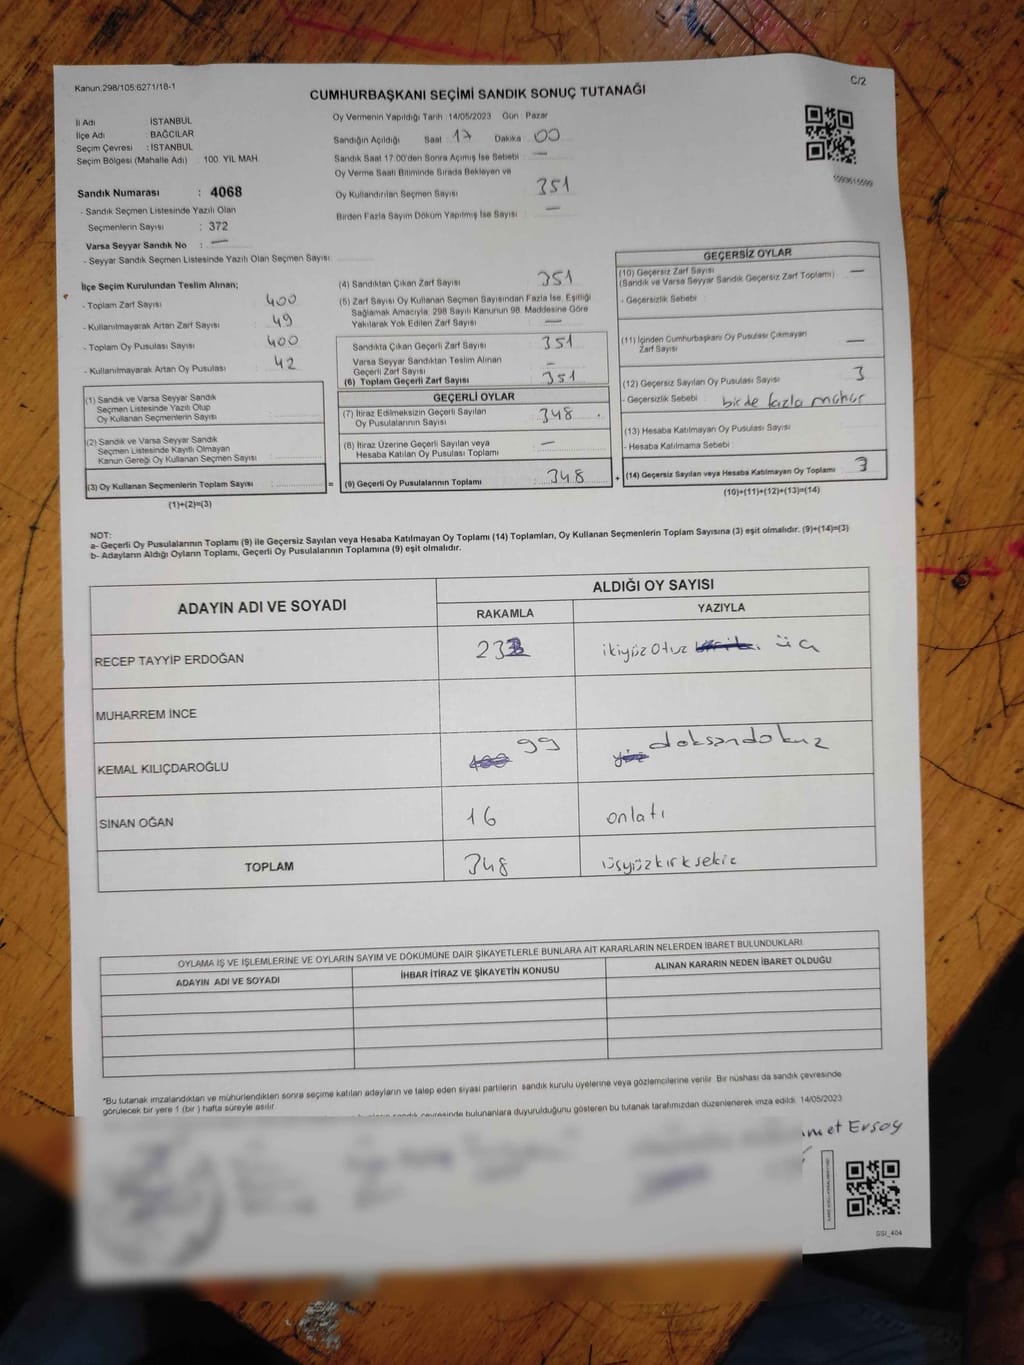 Kanun:298/105;6271/18-1
C/2
CUMHURBAŞKANI SEÇİMİ SANDIK SONUÇ TUTANAĞI
İl Adı : İSTANBUL
İlçe Adı : BAĞCILAR
Seçim Çevresi : İSTANBUL
Seçim Bölgesi (Mahalle Adı) : 100. YIL MAH.
Sandık Numarası : 4068
- Sandık Seçmen Listesinde Yazılı Olan
Seçmenlerin Sayısı : 372
Varsa Seyyar Sandık No : —
- Seyyar Sandık Seçmen Listesinde Yazılı Olan Seçmen Sayısı:
Oy Vermenin Yapıldığı Tarih :14/05/2023 Gün Pazar
Sandığın Açıldığı Saat 17 Dakika 00
Sandık Saat 17:00'den Sonra Açımış İse Sebebi : —
Oy Verme Saati Bitiminde Sırada Bekleyen ve
Oy Kullandırılan Seçmen Sayısı 351
Birden Fazla Sayım Döküm Yapılmış İse Sayısı : —
İlçe Seçim Kurulundan Teslim Alınan;
- Toplam Zarf Sayısı : 400
- Kullanılmayarak Artan Zarf Sayısı : 49
- Toplam Oy Pusulası Sayısı : 400
- Kullanılmayarak Artan Oy Pusulası : 42
(1) Sandık ve Varsa Seyyar Sandık
Seçmen Listesinde Yazılı Olup
Oy Kullanan Seçmenlerin Sayısı :
(2) Sandık ve Varsa Seyyar Sandık
Seçmen Listesinde Kayıtlı Olmayan
Kanun Gereği Oy Kullanan Seçmen Sayısı :
(3) Oy Kullanan Seçmenlerin Toplam Sayısı : =
(1)+(2)=(3)
(4) Sandıktan Çıkan Zarf Sayısı : 351
(5) Zarf Sayısı Oy Kullanan Seçmen Sayısından Fazla İse, Eşitliği
Sağlamak Amacıyla; 298 Sayılı Kanunun 98. Maddesine Göre
Yakılarak Yok Edilen Zarf Sayısı : —
Sandıkta Çıkan Geçerli Zarf Sayısı : 351
Varsa Seyyar Sandıktan Teslim Alınan
Geçerli Zarf Sayısı : —
(6) Toplam Geçerli Zarf Sayısı : 351
GEÇERLİ OYLAR
(7) İtiraz Edilmeksizin Geçerli Sayılan
Oy Pusulalarının Sayısı : 348
(8) İtiraz Üzerine Geçerli Sayılan veya
Hesaba Katılan Oy Pusulası Toplamı : —
(9) Geçerli Oy Pusulalarının Toplamı : 348 +
GEÇERSİZ OYLAR
(10) Geçersiz Zarf Sayısı : —
(Sandık ve Varsa Seyyar Sandık Geçersiz Zarf Toplamı)
- Geçersizlik Sebebi :
(11) İçinden Cumhurbaşkanı Oy Pusulası Çıkmayan
Zarf Sayısı : —
(12) Geçersiz Sayılan Oy Pusulası Sayısı : 3
- Geçersizlik Sebebi : birde fazla mühür
(13) Hesaba Katılmayan Oy Pusulası Sayısı :
- Hesaba Katılmama Sebebi :
(14) Geçersiz Sayılan veya Hesaba Katılmayan Oy Toplamı : 3
(10)+(11)+(12)+(13)=(14)
NOT:
a- Geçerli Oy Pusulalarının Toplamı (9) ile Geçersiz Sayılan veya Hesaba Katılmayan Oy Toplamı (14) Toplamları, Oy Kullanan Seçmenlerin Toplam Sayısına (3) eşit olmalıdır. (9)+(14)=(3)
b- Adayların Aldığı Oyların Toplamı, Geçerli Oy Pusulalarının Toplamına (9) eşit olmalıdır.
ADAYIN ADI VE SOYADI
ALDIĞI OY SAYISI
RAKAMLA YAZIYLA
RECEP TAYYİP ERDOĞAN 233 ikiyüz otuz üç
MUHARREM İNCE
KEMAL KILIÇDAROĞLU 99 doksandokuz
SİNAN OĞAN 16 onlatı
TOPLAM 348 üsyüzkırksekiz
OYLAMA İŞ VE İŞLEMLERİNE VE OYLARIN SAYIM VE DÖKÜMÜNE DAİR ŞİKAYETLERLE BUNLARA AİT KARARLARIN NELERDEN İBARET BULUNDUKLARI
ADAYIN ADI VE SOYADI İHBAR İTİRAZ VE ŞİKAYETİN KONUSU ALINAN KARARIN NEDEN İBARET OLDUĞU
*Bu tutanak imzalandıktan ve mühürlendikten sonra seçime katılan adayların ve talep eden siyasi partilerin sandık kurulu üyelerine veya gözlemcilerine verilir. Bir nüshası da sandık çevresinde
görülecek bir yere 1 (bir ) hafta süreyle asılır.
sandık çevresinde bulunanlara duyurulduğunu gösteren bu tutanak tarafımızdan düzenlenerek imza edildi. 14/05/2023
met Ersoy
SSI_404